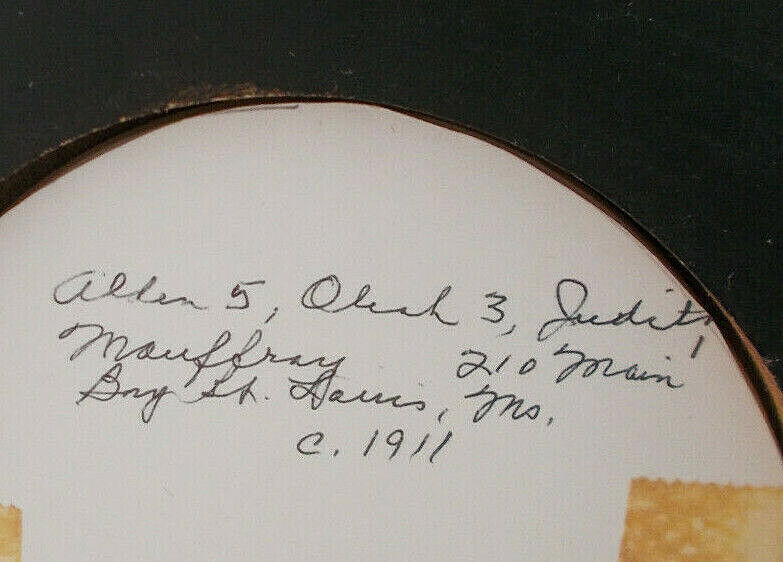 Alden 5, Oleah 3, Judith 1
Mauffray 210 Main
Bay St. Louis, Ms.
c. 1911